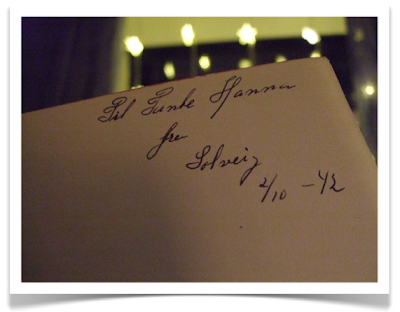 Til Tante Hanna
fra
Solveig
2/10 - 42